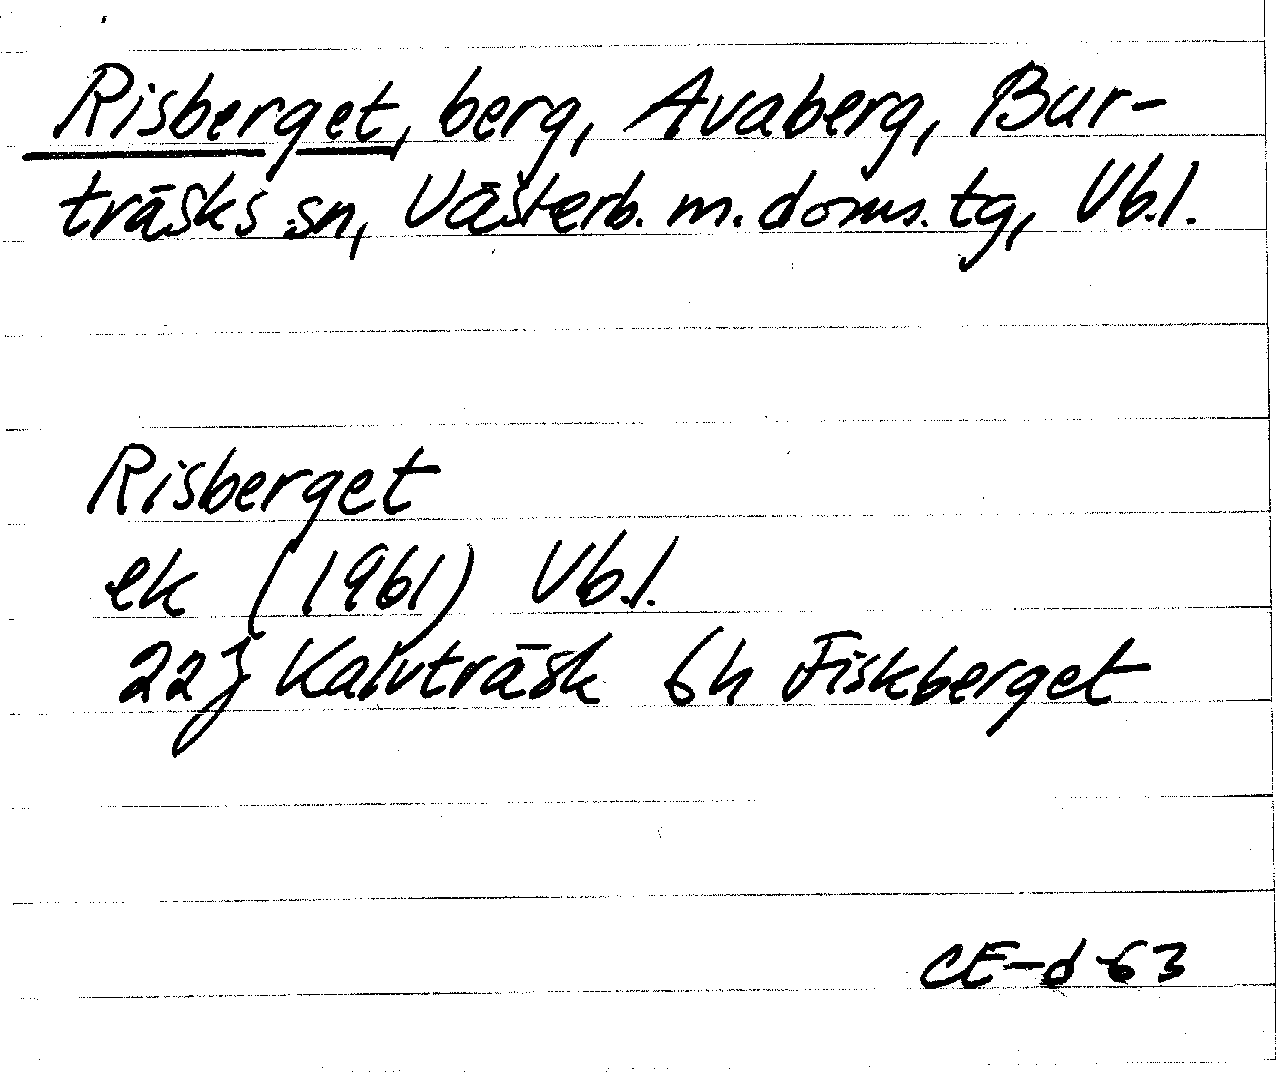 Risberget, berg, Avaberg, Bur-
träsks sn, Västerb. m. doms. tg, Vb.l.
Risberget
ek (1961) Vb.l.
22J Kalvträsk 6h Fiskberget
CE-d-63